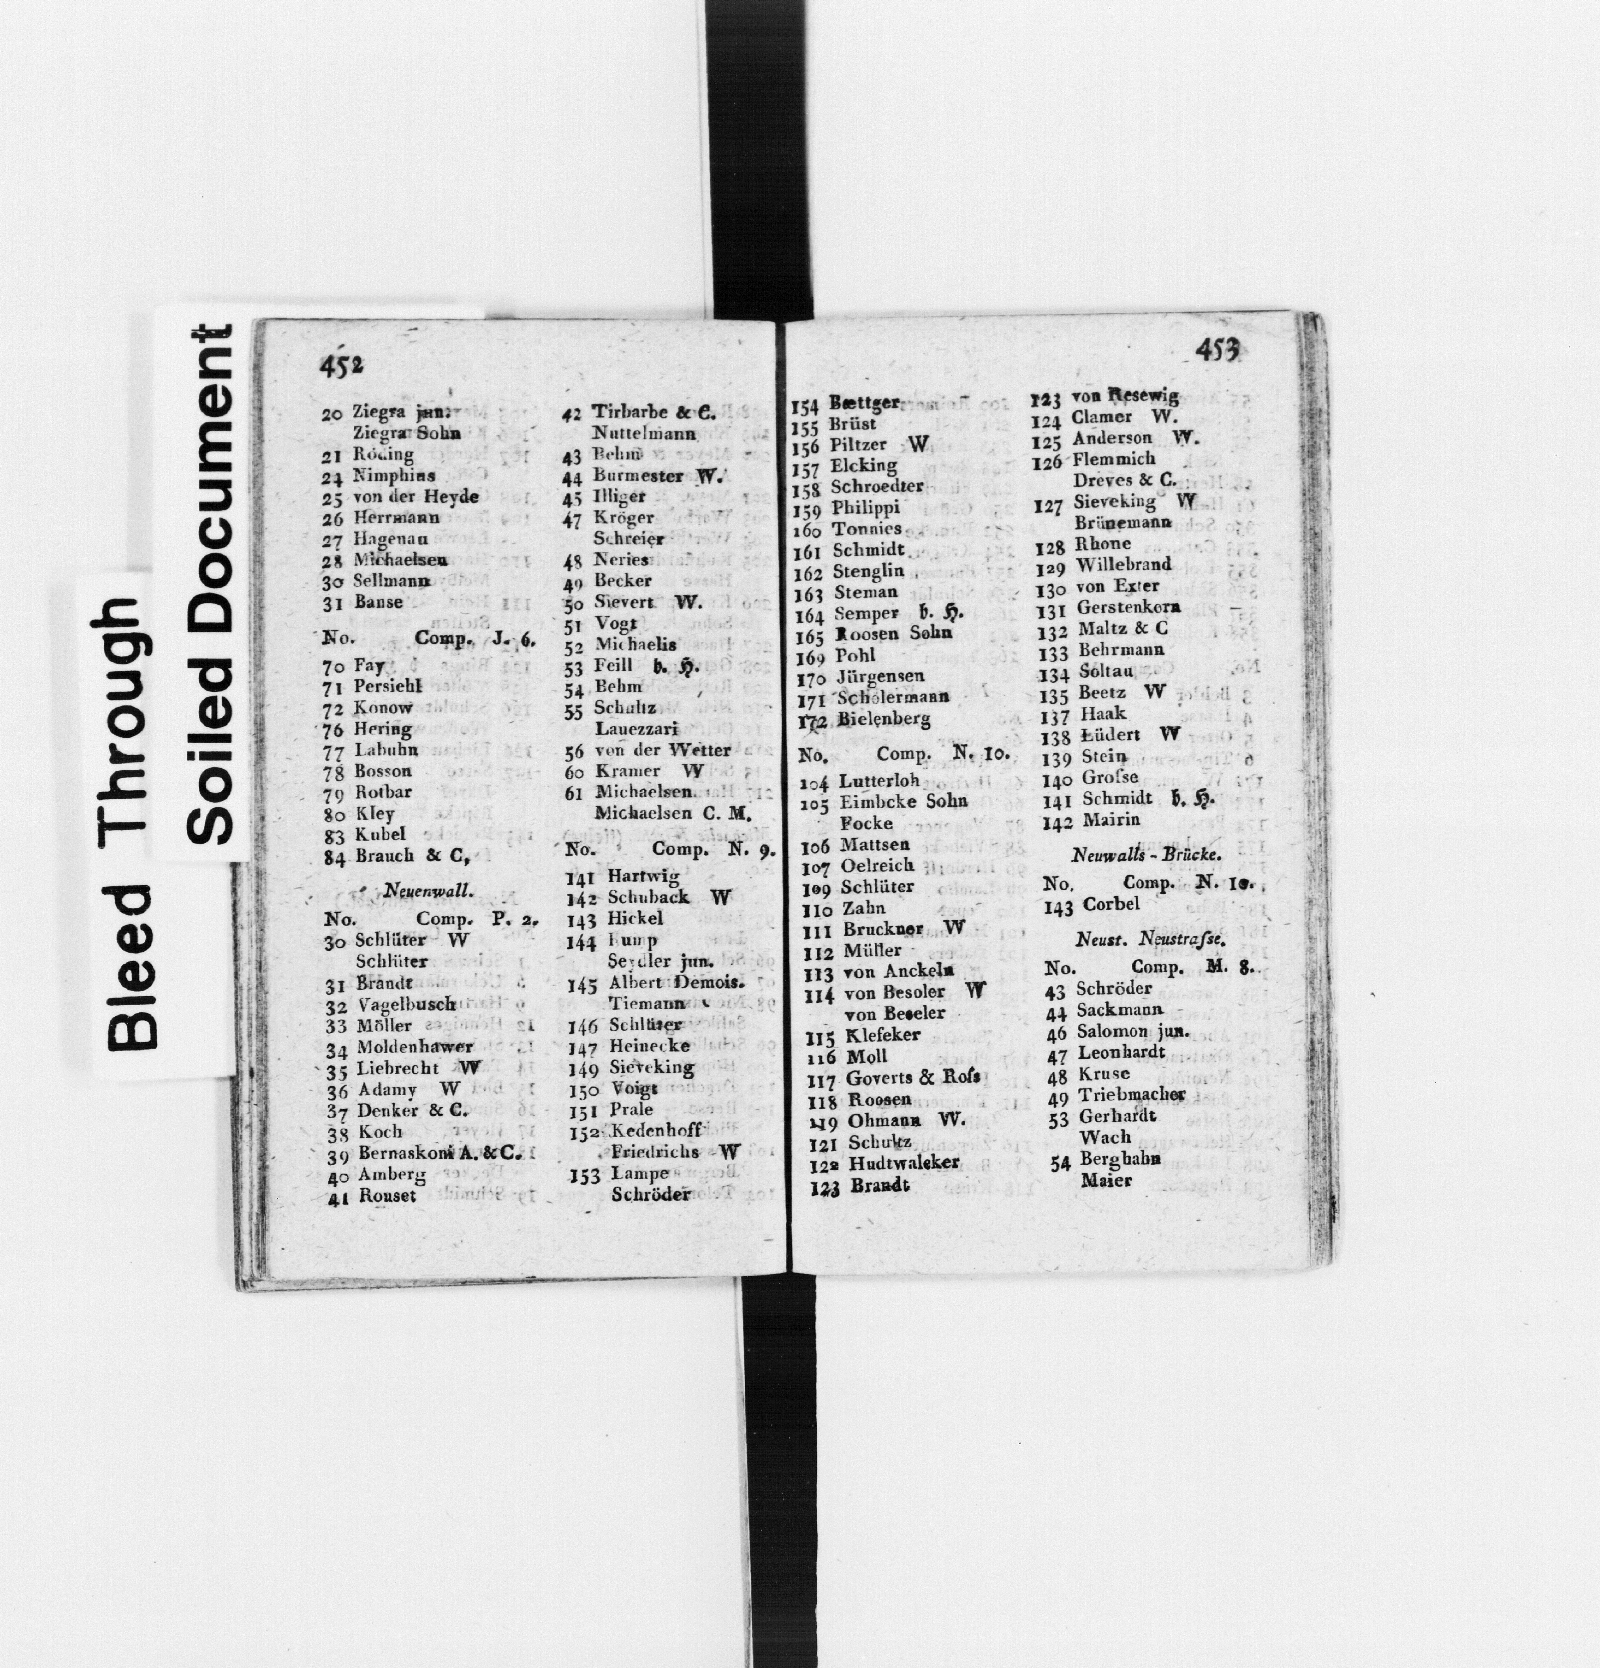 Bleed Through
Soiled Document
452
20 Ziegra jun.
Ziegra Sohn
21 Röding
24 Nimphius
25 von der Heyde
26 Herrmann
27 Hagenau
28 Michaelsen
30 Sellmann
31 Banse
No. Comp. J. 6.
70 Fay
71 Persiehl
72 Konow
76 Hering
77 Labuhn
78 Bosson
79 Rotbar
80 Kley
83 Kubel
84 Brauch & C,
Neuenwall.
No. Comp. P. 2.
30 Schlüter W
Schlüter
31 Brandt
32 Vagelbusch
33 Möller
34 Moldenhawer
35 Liebrecht W
36 Adamy W
37 Denker & C.
38 Koch
39 Bernaskoni A. & C.
40 Amberg
41 Rouset
42 Tirbarbe & C.
Nuttelmann
43 Behm
44 Burmester W.
45 Illiger
47 Kröger
Schreier
48 Neries
49 Becker
50 Sievert W.
51 Vogt
52 Michaelis
53 Feill b. H.
54 Behm
55 Schultz
Lauezzari
56 von der Wetter
60 Kramer W
61 Michaelsen
Michaelsen C. M.
No. Comp. N. 9.
141 Hartwig
142 Schuback W
143 Hickel
144
Seydler jun.
145 Albert Demois.
Tiemann
146 Schlüter
147 Heinecke
149 Sieveking
150 Voigt
151 Prale
152 Kedenhoff
Friedrichs W
153 Lampe
Schröder
453
154 Bættger
155 Brüst
156 Piltzer W
157 Elcking
158 Schroedter
159 Philippi
160 Tonnies
161 Schmidt
162 Stenglin
163 Steman
164 Semper b. H.
165 Roosen Sohn
169 Pohl
170 Jürgensen
171 Schölermann
172 Bielenberg
No. Comp. N. 10.
104 Lutterloh
105 Eimbcke Sohn
Focke
106 Mattsen
107 Oelreich
109 Schlüter
110 Zahn
111 Bruckner W
112 Müller
113 von Anckeln
114 von Besoler W
von Beseler
115 Klefeker
116 Moll
117 Goverts & Roſs
118 Roosen
119 Ohmann W.
121 Schultz
122 Hudtwalcker
123 Brandt
123 von Resewig
124 Clamer W.
125 Anderson W.
126 Flemmich
Dreves & C.
127 Sieveking W
Brünemann
128 Rhone
129 Willebrand
130 von Exter
131 Gerstenkorn
132 Maltz & C
133 Behrmann
134 Soltau
135 Beetz W
137 Haak
138 Lüdert W
139 Stein
140 Groſse
141 Schmidt b. H.
142 Mairin
Neuwalls-Brücke.
No. Comp. N. 10.
143 Corbel
Neust. Neustraſse.
No. Comp. M. 8.
43 Schröder
44 Sackmann
46 Salomon jun.
47 Leonhardt
48 Kruse
49 Triebmacher
53 Gerhardt
Wach
54 Berghahn
Maier